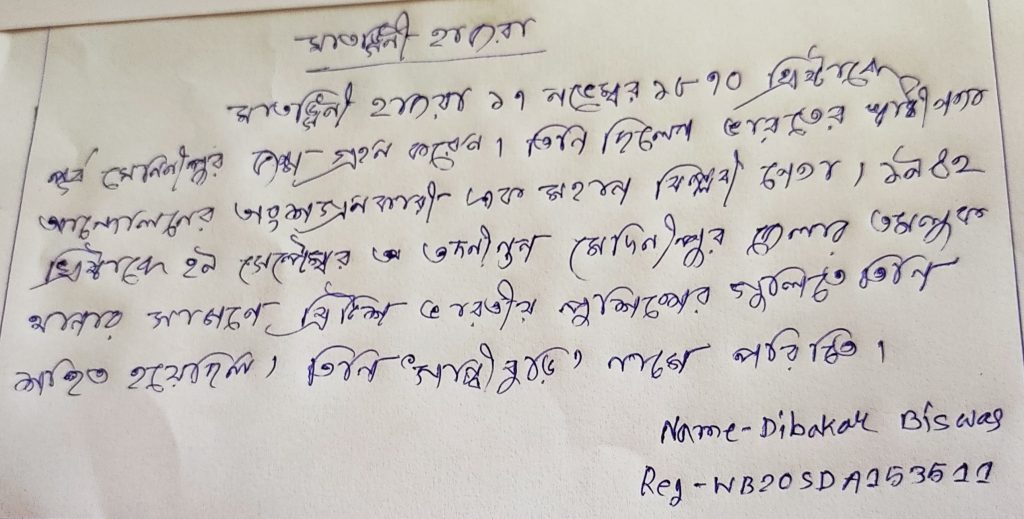 মাতঙ্গিনী হাজরা
মাতঙ্গিনী হাজরা ১৭ নভেম্বর ১৮৭০ খ্রিষ্টাব্দে
পূর্ব মেদিনীপুর জন্ম গ্রহন করেন। তিনি ছিলেন ভারতের স্বাধীনতা
আন্দোলনের অংশগ্রহনকারী এক মহান বিপ্লবী নেতা। ১৯৪২
খ্রিষ্টাব্দে ২৯ সেপ্টেম্বর তদানীন্তন মেদিনীপুর জেলার তমলুক
থানার সামনে ব্রিটিশ ভারতীয় পুলিশের গুলিতে তিনি
শহিত হয়েছিল। তিনি "গান্ধীবুড়ি" নামে পরিচিত।
Name-Dibakar Biswas
Reg-WB20SDA153511